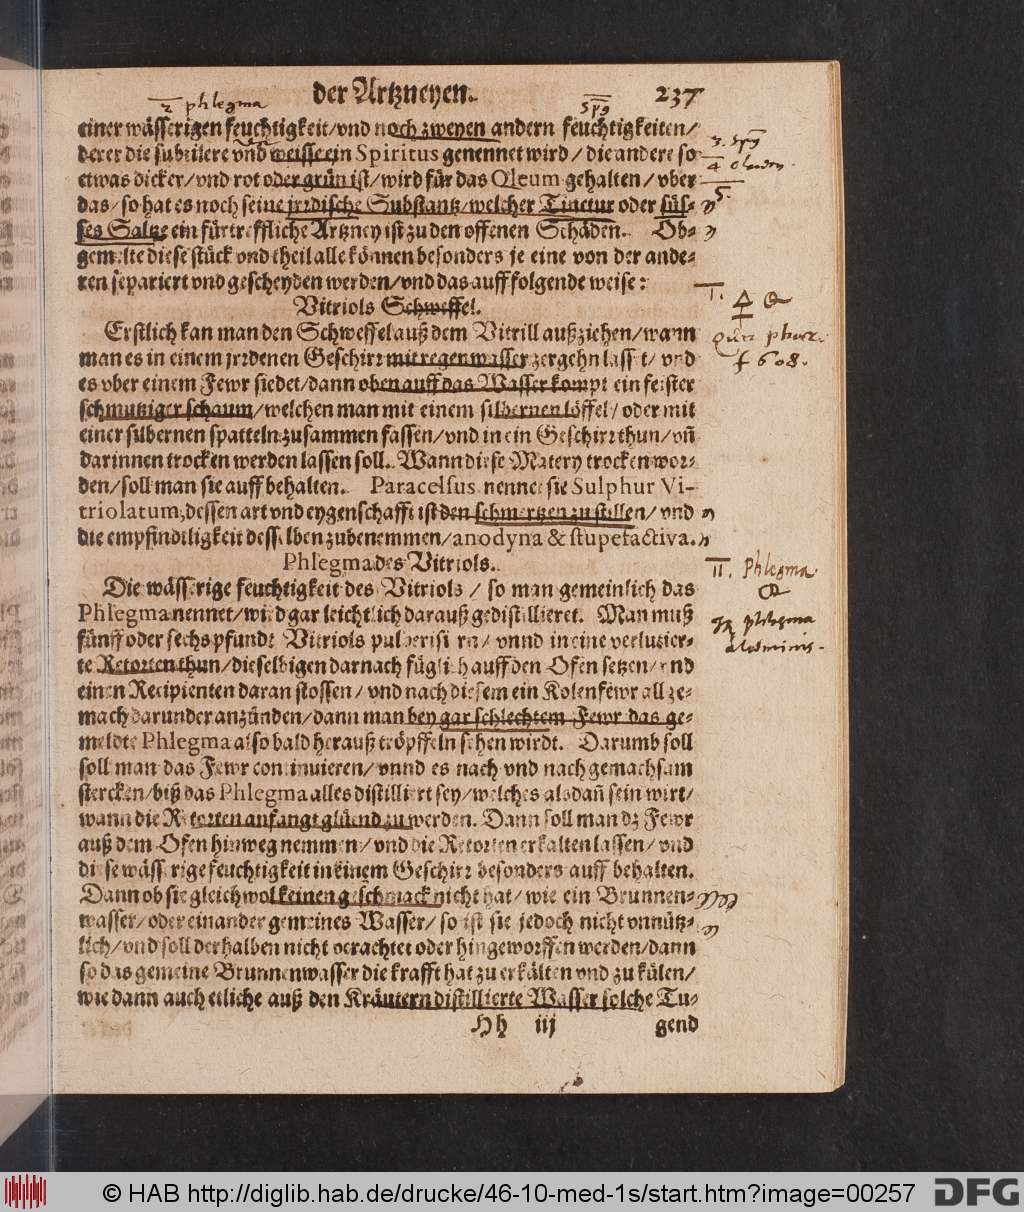 der Artzneyen. 237
2 phlegma
einer wässerigen feuchtigkeit/vnd noch zweyen andern feuchtigkeiten/
derer die subtilere vnd weisse ein Spiritus genennet wird/die andere so
etwas dicker/vnd rot oder grün ist/wird für das Oleum gehalten/vber
das/so hat es noch seine jrrdische Substantz/welcher Tinctur oder süs-
ses Saltze ein fürtreffliche Artzney ist zu den offenen Schäden. Ob-
gemelte diese stück vnd theil alle können besonders je eine von der ande-
ren separiert vnd gescheyden werden/vnd das auff folgende weise:
Vitriols Schweffel.
I.
Erstlich kan man den Schweffel auß dem Vitrill außziehen/wann
man es in einem jrrdenen Geschirr mit regenwasser zergehn lasset/vnd
f 608.
es vber einem Fewr siedet/dann oben auff das Wasser kompt ein feister
schmutziger schaum/welchen man mit einem silbernen löffel/oder mit
einer silbernen spatteln zusammen fassen/vnd in ein Geschirr thun/vñ
darinnen trocken werden lassen soll. Wann diese Matery trocken wor-
den/soll man sie auff behalten. Paracelsus nennet sie Sulphur Vi-
triolatum, dessen art vnd eygenschafft ist den schmertzen zu stillen/vnd
die empfindtligkeit desselben zubenemmen/anodyna & stupefactiva.
Phlegma des Vitriols.
II. Phlegma
Die wässerige feuchtigkeit des Vitriols/so man gemeinlich das
Phlegma nennet/wird gar leichtlich darauß gedistillieret. Man muß
phlegma
fünff oder sechs pfundt Vitriols pulverisieren/vnnd in eine verlutier-
aluminis.
te Retorten thun/dieselbigen darnach füglich auff den Ofen setzen/vnd
einen Recipienten daran stossen/vnd nach diesem ein Kolenfewr allge-
mach darunder anzünden/dann man bey gar schlechtem Fewr das ge-
meldte Phlegma also bald herauß tröpffeln sehen wirdt. Darumb soll
soll man das Fewr continuieren/vnnd es nach vnd nach gemachsam
stercken/biß das Phlegma alles distilliert sey/welches alsdañ sein wirt/
wann die Retorten anfangt glüend zu werden. Dann soll man dz Fewr
auß dem Ofen hinweg nemmen/vnd die Retorten erkalten lassen/vnd
diese wässerige feuchtigkeit in einem Geschirr besonders auff behalten.
Dann ob sie gleichwol keinen geschmack nicht hat/wie ein Brunnen-
wasser/oder ein ander gemeines Wasser/so ist sie jedoch nicht vnnütz-
lich/vnd soll derhalben nicht verachtet oder hingeworffen werden/dann
so das gemeine Brunnenwasser die krafft hat zu erkälten vnd zu külen/
wie dann auch etliche auß den Kräutern distillierte Wasser solche Tu-
Hh iij gend
© HAB http://diglib.hab.de/drucke/46-10-med-1s/start.htm?image=00257 DFG